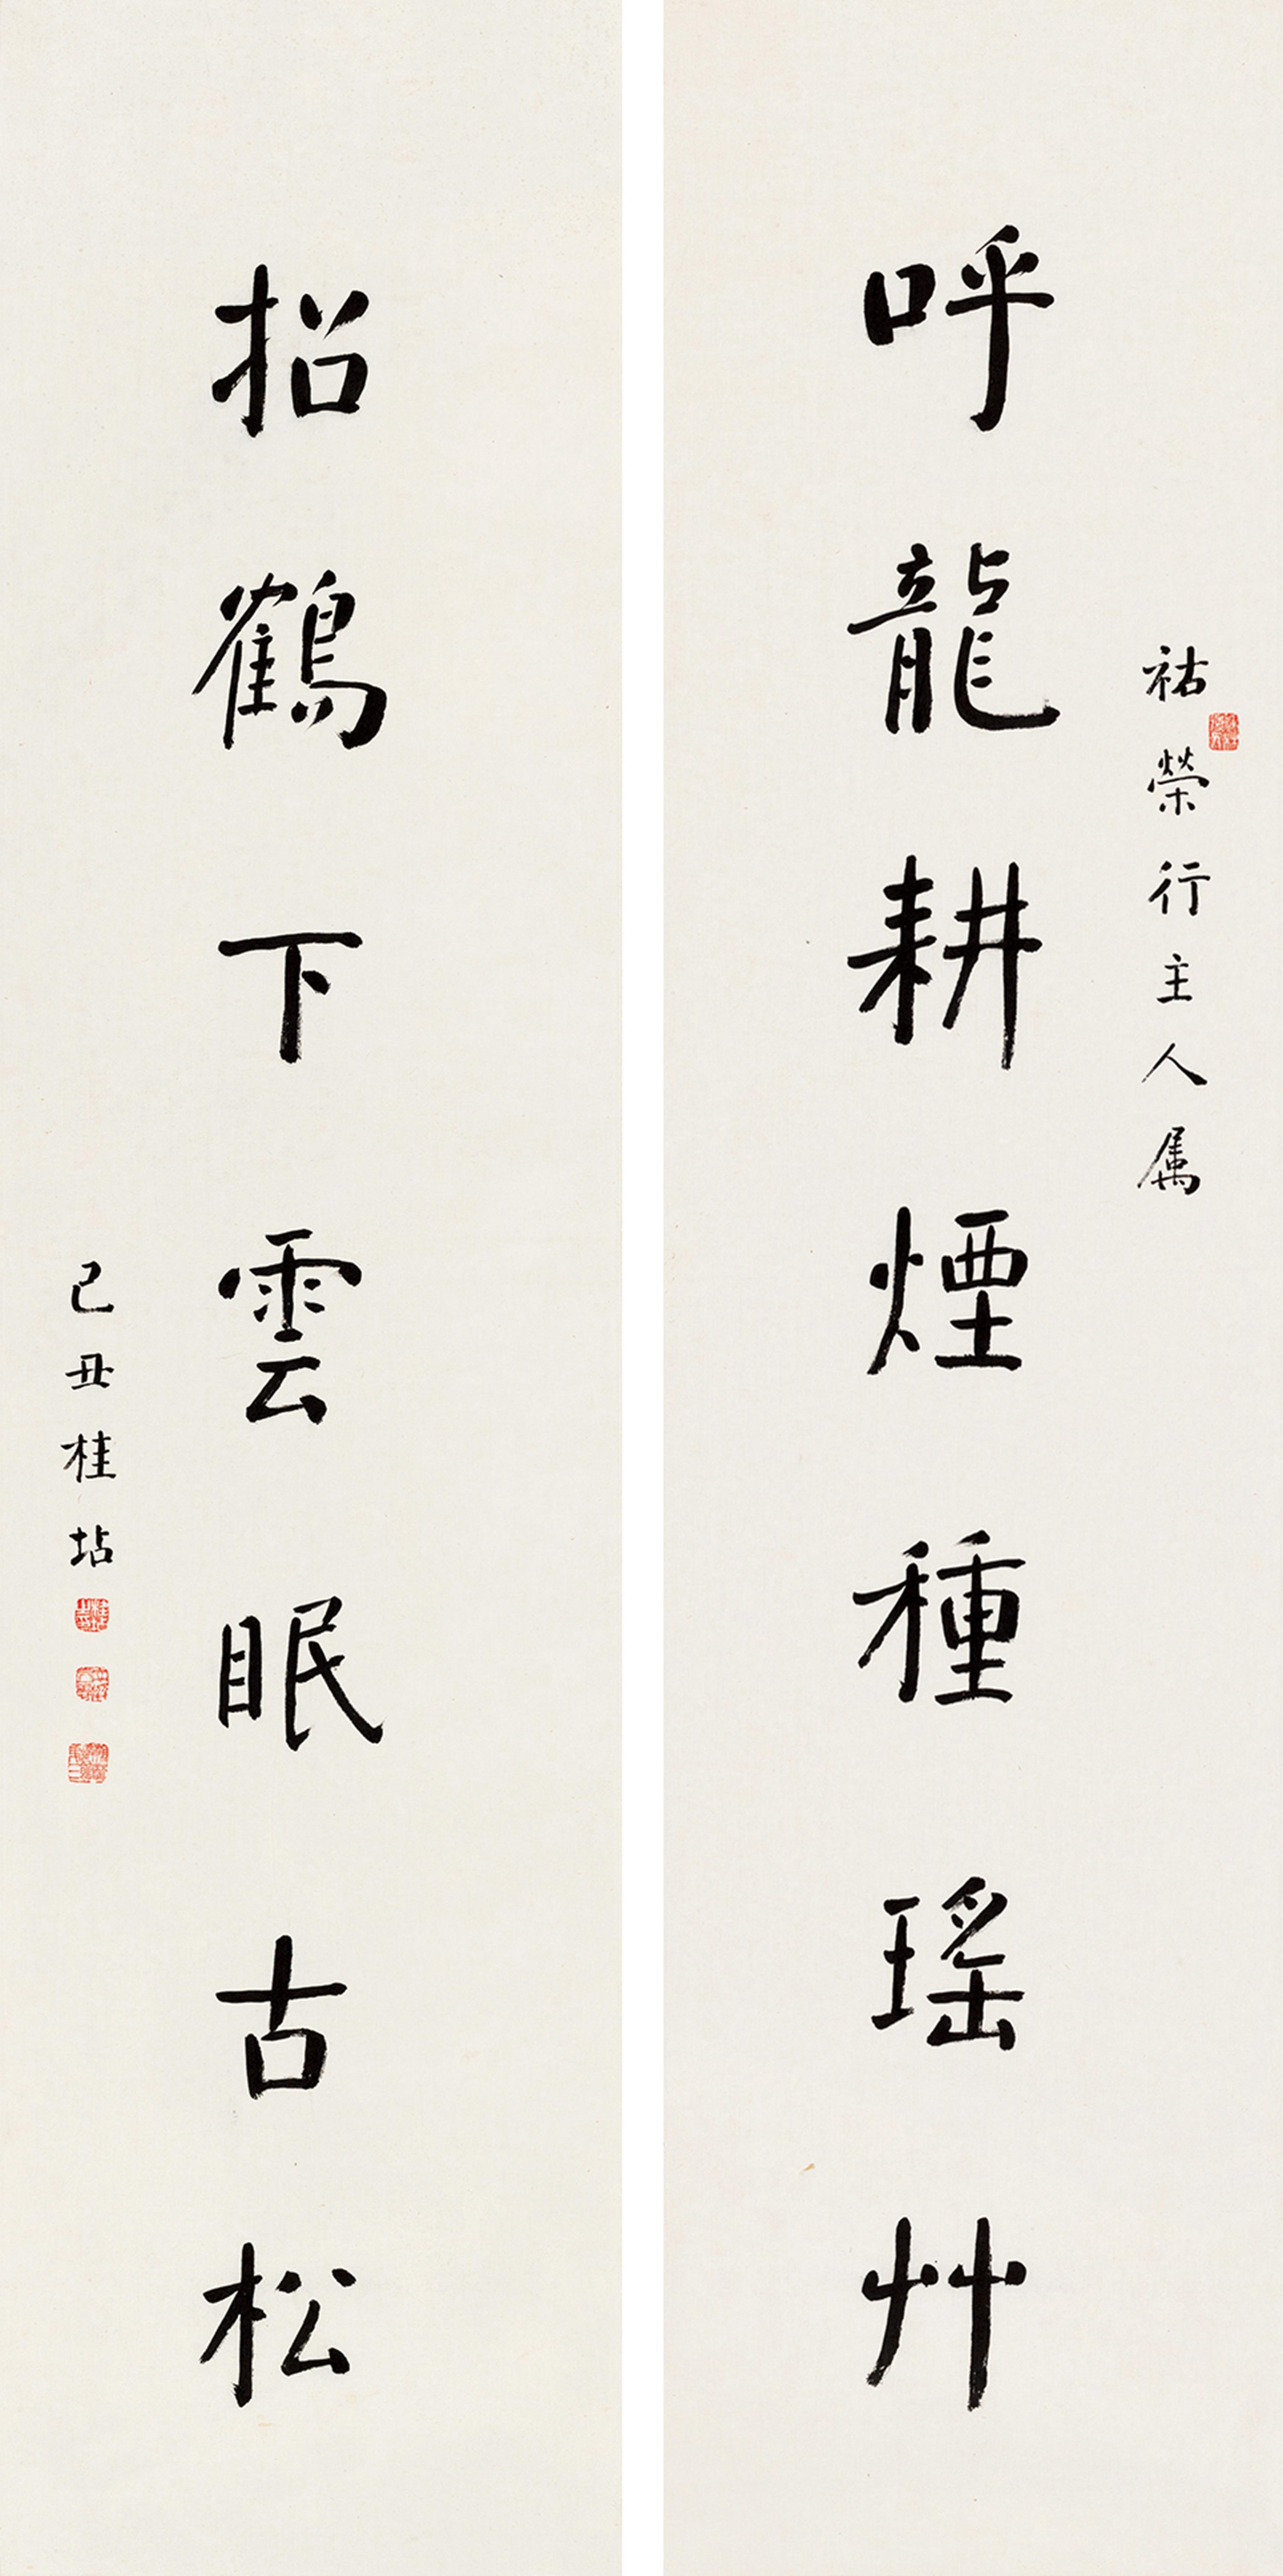 祐榮行主人属
呼龍耕煙種瑤艸
招鶴下雲眠古松
己丑桂坫